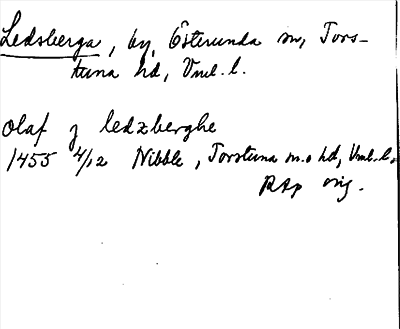 Ledsberga, by, Österunda sn, Tors-
tuna hd, Vml. l.
Olaf j ledzberghe
1455 4/12 Nibble, Torstuna sn. o hd, Vml. l.
RAp orig.